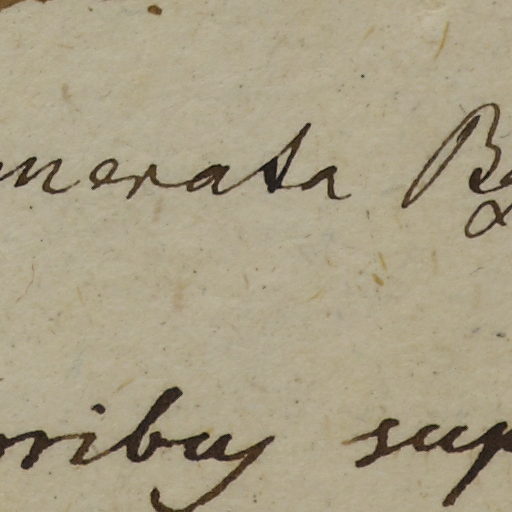 merata B
oribus sup